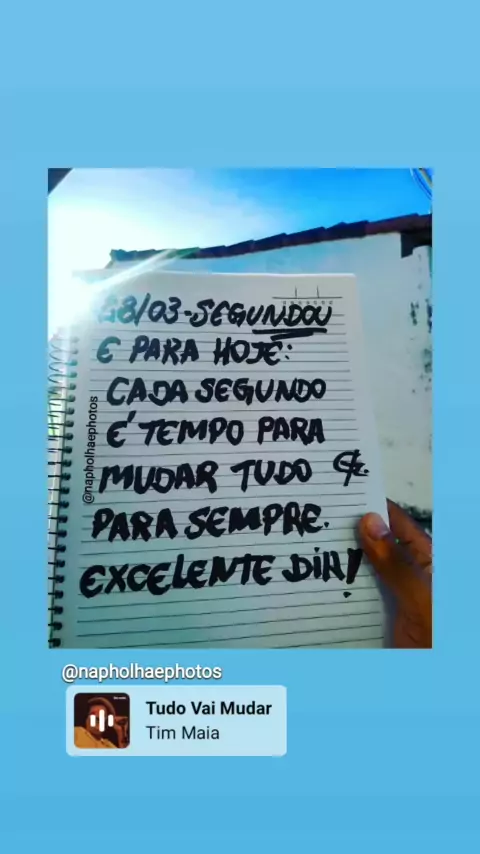 28/03-SEGUNDOU
E PARA HOJE:
CADA SEGUNDO
É TEMPO PARA
MUDAR TUDO
PARA SEMPRE.
EXCELENTE DIA!
@napholhaephotos
@napholhaephotos
Tudo Vai Mudar
Tim Maia